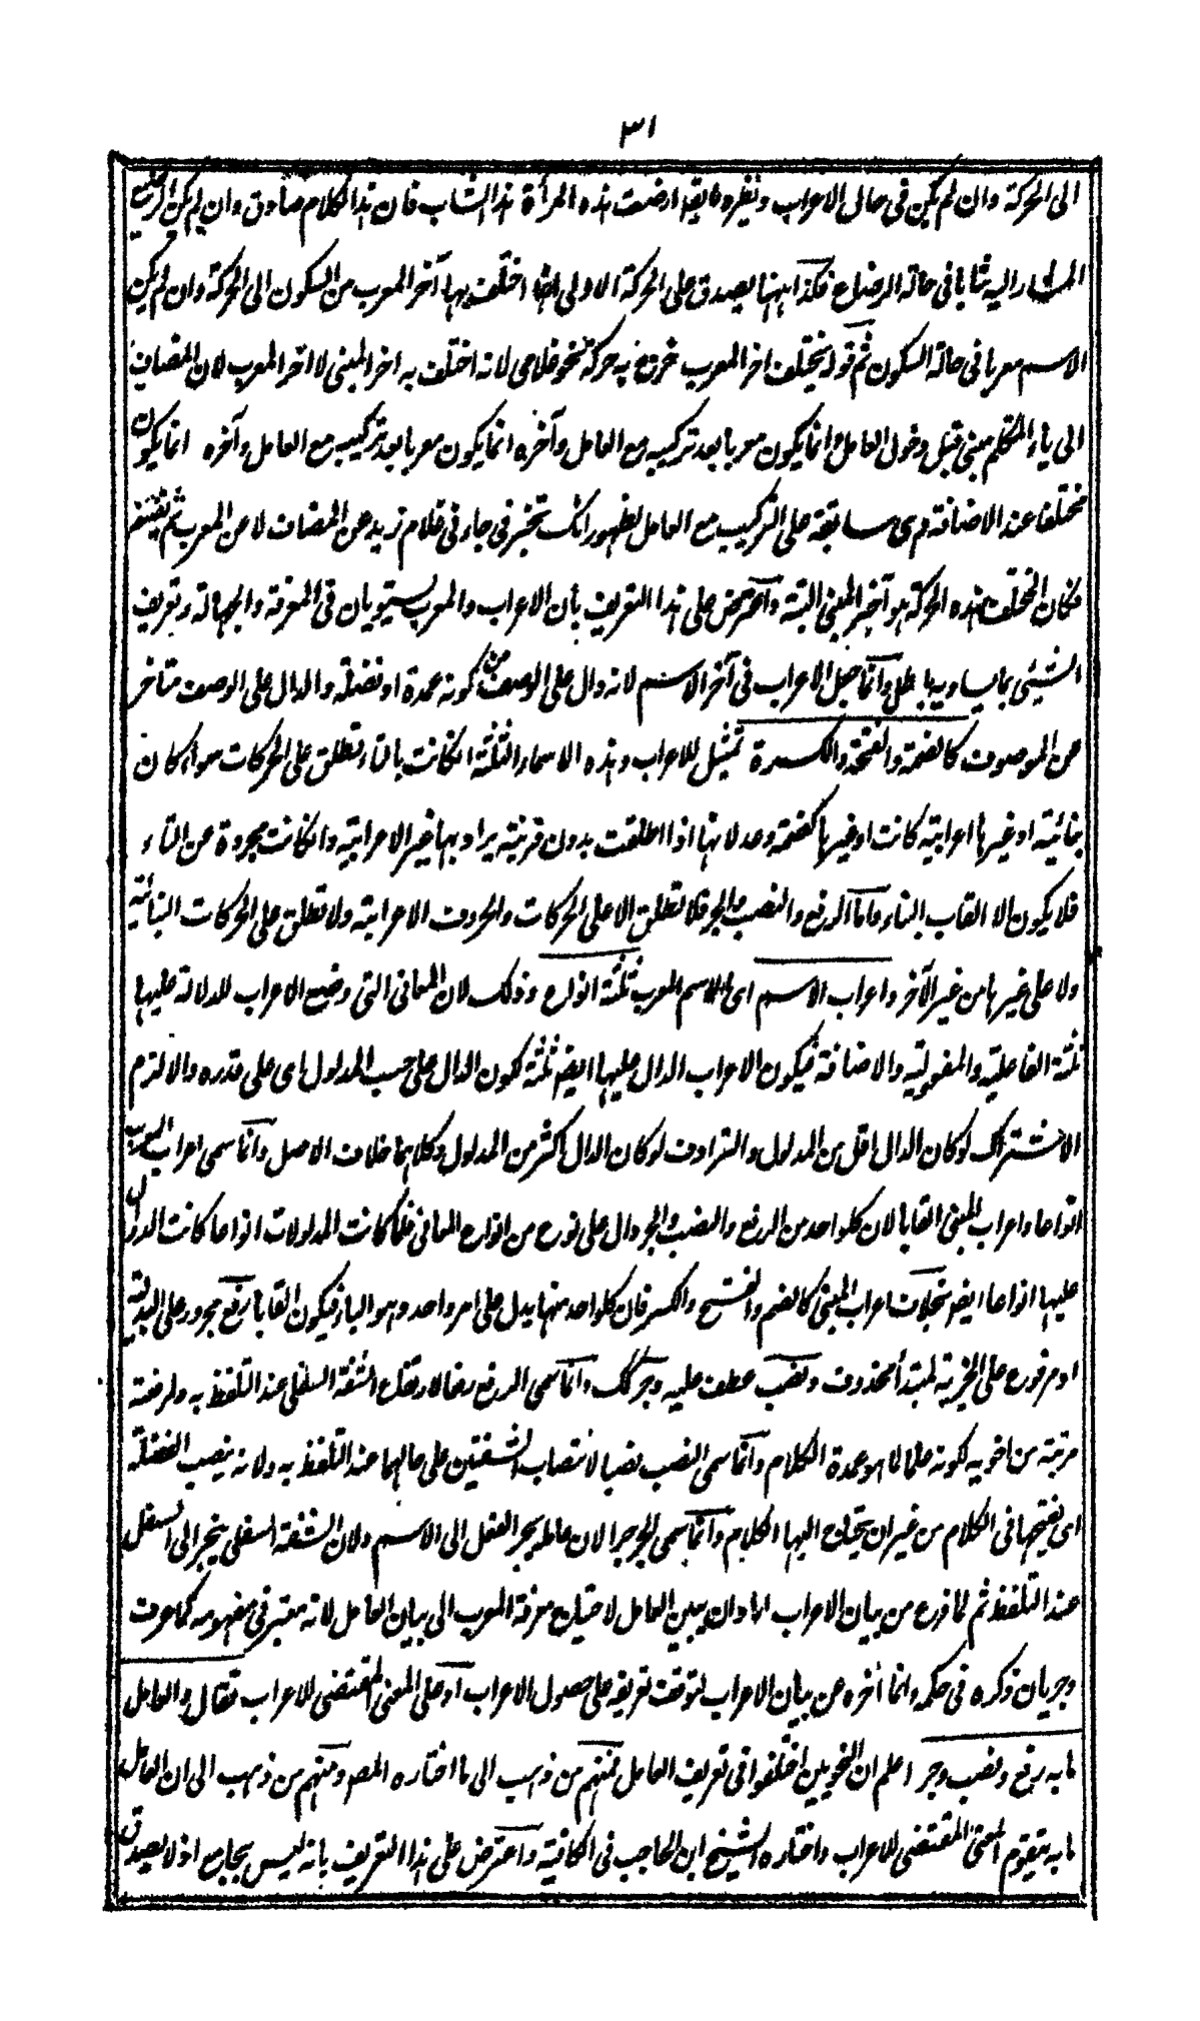 ٣١
الى الحركة وان لم يكن فى حال الاعراب ونظيره ما يقال ارضعت هذه المرأة هذا الشاب فان هذا الكلام صادق وان لم يكن الرضيع
المشار اليه شابا فى حالة الرضاع فكذا ههنا يصدق على الحركة الاولى انها اختلف بها آخر المعرب من السكون الى الحركة وان لم يكن
الاسم معربا فى حالة السكون ثم قوله يختلف اخر المعرب خرج به حركة نحو غلامى لانه اختلف به اخر المبنى لا اخر المعرب لان المضاف
الى ياء المتكلم مبنى قبل دخول العامل وانما يكون معربا بعد تركيبه مع العامل وآخره انما يكون معربا بعد تركيبه مع العامل وآخره انما يكون
مختلفا عند الاضافة وهى سابقة على التركيب مع العامل لظهور انك تخبر فى جاءنى غلام زيد عن المضاف لا عن المعرب ثم
فكان المختلف بهذه الحركة هو آخر المبنى البتة واعترض على هذا التعريف بأن الاعراب والمعرب يستويان فى المعرفة والجهالة وتعريف
الشيئ بما يساويه باطل وانما جعل الاعراب فى آخر الاسم لانه دال على الوصف من كونه عمدة او فضلة والدال على الوصف متأخر
عن الموصوف كالضمة والفتحة والكسرة تمثيل للاعراب وهذه الاسماء الثلثة ان كانت بالتاء تطلق على الحركات سواء كان
بنائية او غيرها اعرابية كانت او غيرها كضمة وعد لانها اذا اطلقت بدون قرينة يراد بها غير الاعرابية وان كانت مجردة عن التاء
فلا يكون الا القاب البناء واما الرفع والنصب والجر فلا تطلق الا على الحركات والحروف الاعرابية ولا تطلق على الحركات البنائية
ولا على غيرها من غير الآخر واعراب الاسم اى الاسم المعرب ثلثة انواع وذلك لان المعانى التى وضع الاعراب للدلالة عليها
ثلثة الفاعلية والمفعولية والاضافة فيكون الاعراب الدال عليها ايضا ثلثة لكون الدال على حسب المدلول اى على قدره والا لزم
الاشتراك لو كان الدال اقل من المدلول والترادف لو كان الدال اكثر من المدلول وكلاهما خلاف الاصل وانما سمى اعراب المعرب
انواعا واعراب المبنى القابا لان كلواحد من الرفع والنصب والجر دال على نوع من انواع المعانى فلما كانت المدلولات انواعا كانت الدوال
عليها انواعا ايضا بخلاف اعراب المبنى كالضم والفتح والكسر فان كلواحد منها يدل على امر واحد وهو البناء فيكون القابا رفع مجرور على البدلية
او مرفوع على الخبرية لمبتدأ محذوف ونصب عطف عليه وجر كذلك وانما سمى الرفع رفعا لارتفاع الشفة السفلى عند التلفظ به ولرفعة
مرتبته من اخويه لكونه علما لما هو عمدة الكلام وانما سمى النصب نصبا لانتصاب الشفتين على حالهما عند التلفظ به ولانه ينصب الفضلة
اى يفتحها فى الكلام من غير ان يحتاج اليها الكلام وانما سمى الجر جرا لان عامله يجر الفعل الى الاسم ولان الشفة السفلى ينجر الى السفل
عند التلفظ ثم لما فرغ من بيان الاعراب اراد ان يبين العامل لاحتياج معرفة المعرب الى بيان العامل لانه معتبر فى مفهومه كما عرفت
وجريان ذكره فى حكمه وانما أخره عن بيان الاعراب لتوقف تعريفه على حصول الاعراب او على المعنى المقتضى للاعراب فقال والعامل
ما به رفع ونصب وجر اعلم ان النحويين اختلفوا فى تعريف العامل فمنهم من ذهب الى ما اختاره المص ومنهم من ذهب الى ان العامل
ما به يتقوم المعنى المقتضى للاعراب واختاره الشيخ ابن الحاجب فى الكافية واعترض على هذا التعريف بانه ليس بجامع اذ لا يصدق